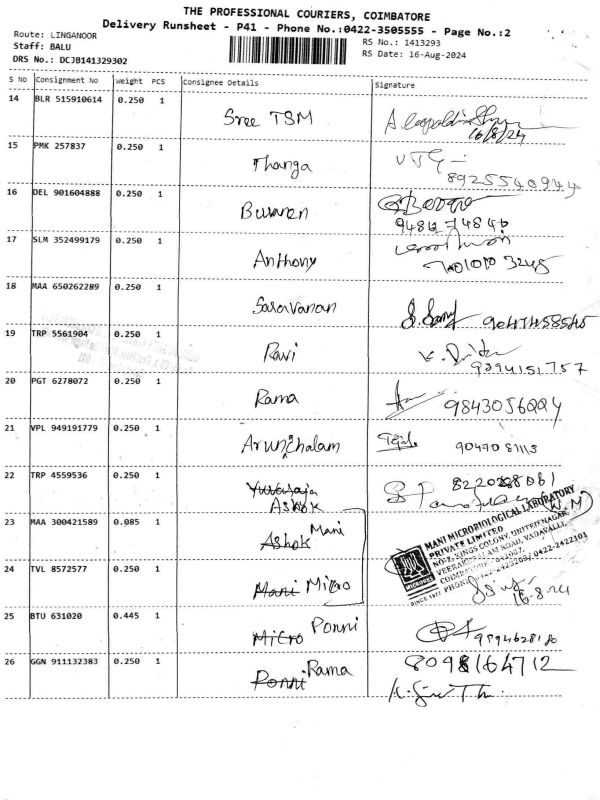 THE PROFESSIONAL COURIERS, COIMBATORE
Delivery Runsheet - P41 - Phone No.:0422-3505555 - Page No.:2
Route: LINGANOOR
Staff: BALU
DRS No.: DCJB141329302
RS No.: 1413293
RS Date: 16-Aug-2024
S No Consignment No Weight PCS Consignee Details Signature
14 BLR 515910614 0.250 1 Sree TSM
16/8/24
15 PMK 257837 0.250 1 Thanga
8925540944
16 DEL 901604888 0.250 1
17 SLM 352499179 0.250 1 Anthony
18 MAA 650262289 0.250 1 Saravanan
9047458545
19 TRP 5561904 0.250 1 Ravi
20 PGT 6278072 0.250 1 Rama
21 VPL 949191779 0.250 1 Arunachalam
22 TRP 4559536 0.250 1 Yuvaraja
Ashok
8220288061
23 MAA 300421589 0.085 1 Ashok Mani
MANI MICROBIOLOGICAL LABORATORY
PRIVATE LIMITED
NO-2, KINGS COLONY, UNITED NAGAR,
VEERAKERALAM ROAD, VADAVALLI,
24 TVL 8572577 0.250 1 Mani Micro
16-8-24
25 BTU 631020 0.445 1 Micro Ponni
26 GGN 911132383 0.250 1 Ponni Rama
8098164712